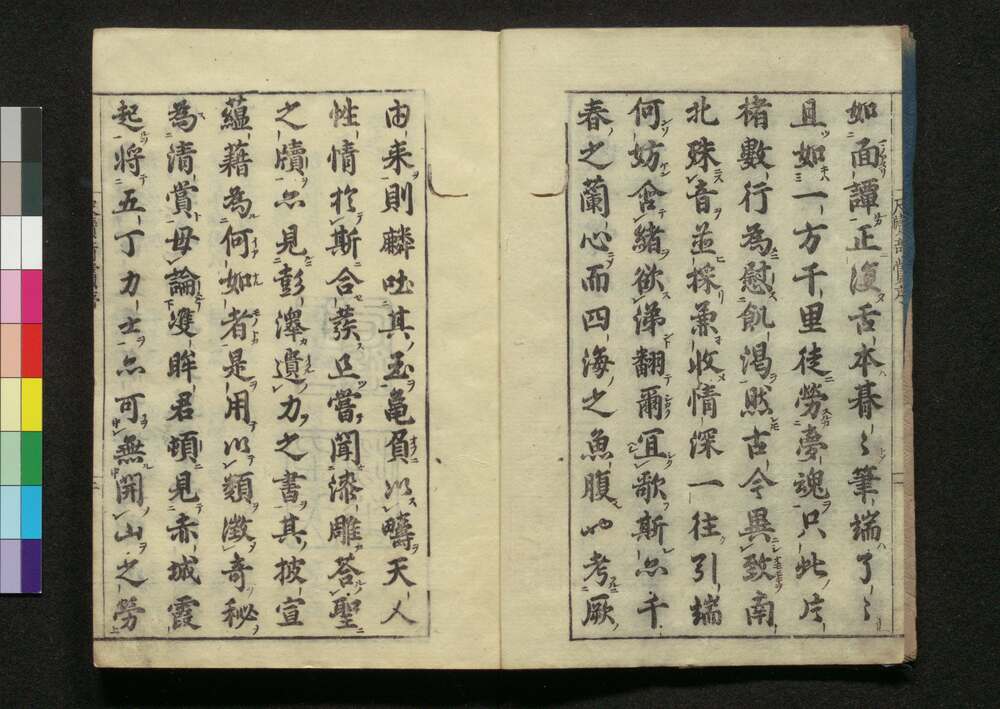 如面譚正復舌本暮〻筆端了〻
且如一方千里徒勞夢魂只此片
楮數行為慰飢渴然古今異致南
北殊音並採兼收情深一往引端
何妨含緒欲涕翻爾冝歌斯亦千
春之蘭心而四海之魚腹也考厥
由来則麟吐其玉亀負以疇天人
性情於斯合蔟且嘗聞漆雕荅聖
之牘亦見彭澤遺力之書其披宣
蘊藉為何如者是用以類徵奇秘
為清賞毋論雙眸君頓見赤城霞
起将五丁力士亦可無開山之勞